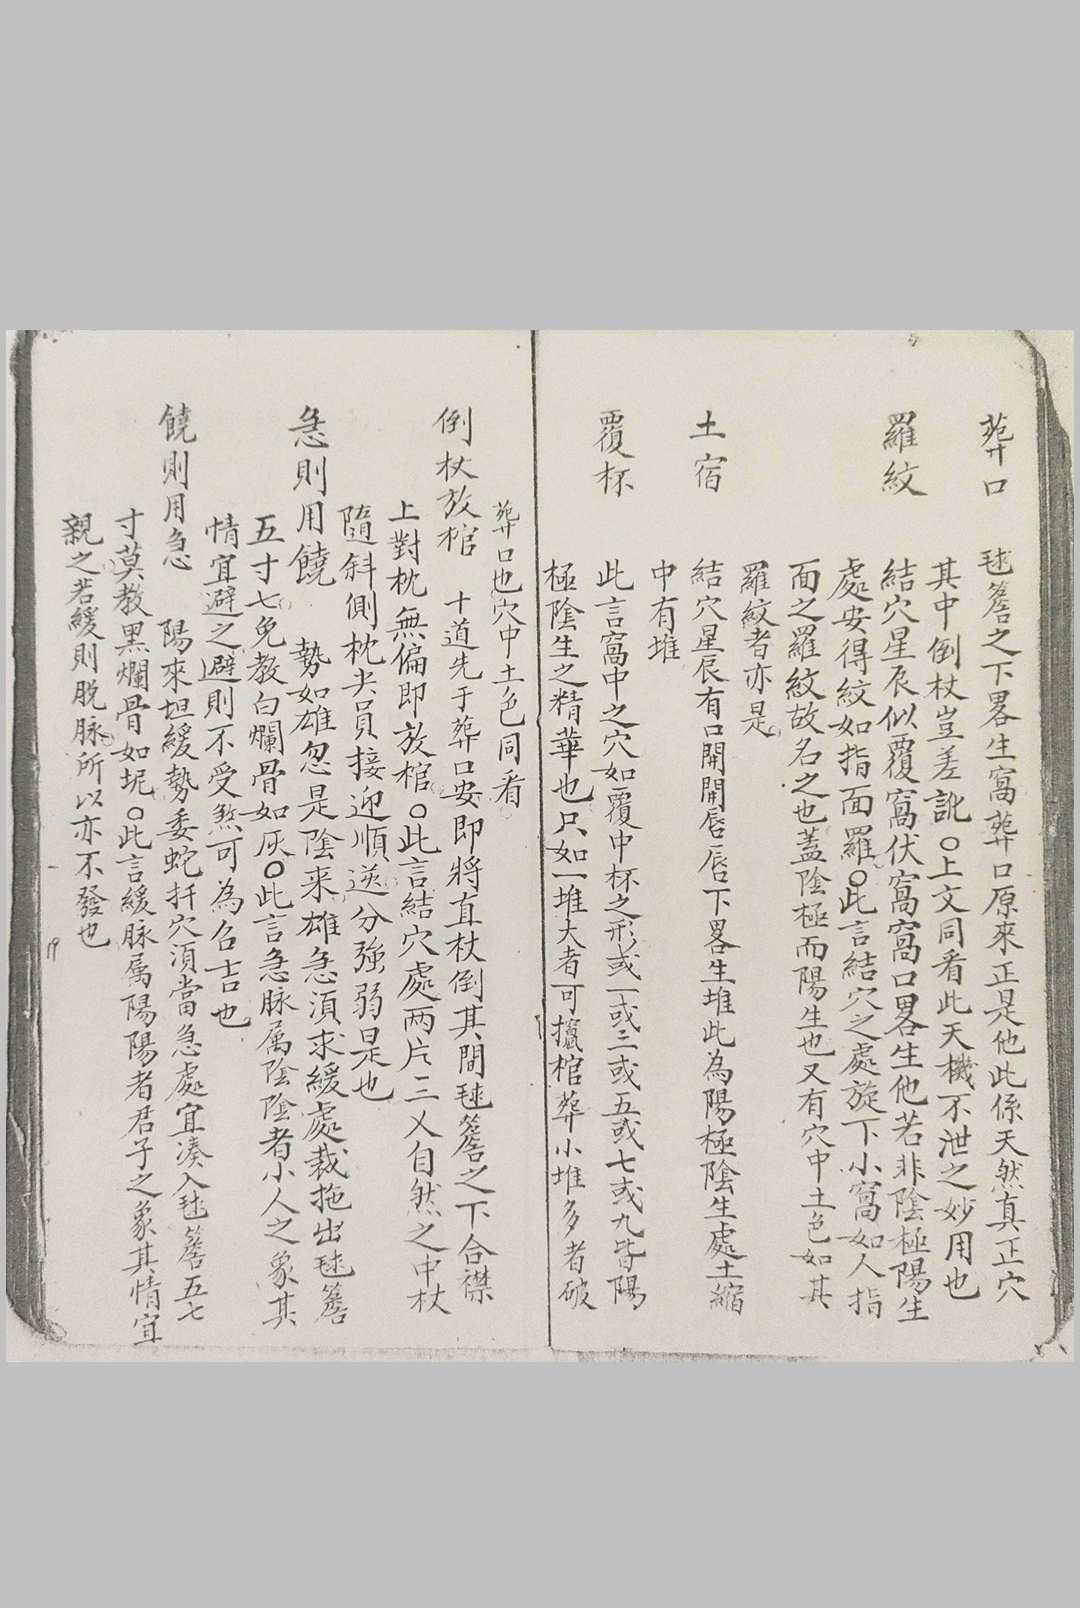 葬口　毬簷之下畧生窩葬口原來正是他此係天然真正穴
其中倒杖豈差訛○上文同看此天機不泄之妙用也
羅紋　結穴星辰似覆窩伏窩窩口畧生他若非陰極陽生
處安得紋如指面羅○此言結穴之處旋下小窩如人指
面之羅紋故名之也蓋陰極而陽生也又有穴中土色如其
羅紋者亦是
土宿　結穴星辰有口開開唇唇下畧生堆此為陽極陰生處土縮
中有堆
覆杯　此言窩中之穴如覆中杯之形或一或三或五或七或九皆陽
極陰生之精華也只如一堆大者可攨棺葬小堆多者破
葬口也穴中土色同看
倒杖放棺　十道先于葬口安即將直杖倒其間毬簷之下合襟
上對枕無偏即放棺○此言結穴處两片三义自然之中杖
隨斜側枕尖員接迎順送分強弱是也
急則用饒　勢如雄忽是陰来雄急湏求緩處裁拖出毬簷
五寸七免教白爛骨如灰○此言急脉属陰陰者小人之象其
情宜避之避則不受煞可為召吉也
饒則用急　陽來坦緩勢委蛇扦穴湏當急處宜湊入毬簷五七
寸莫教黑爛骨如坭○此言緩脉属陽陽者君子之象其情宜
親之若緩則脱脉所以亦不發也